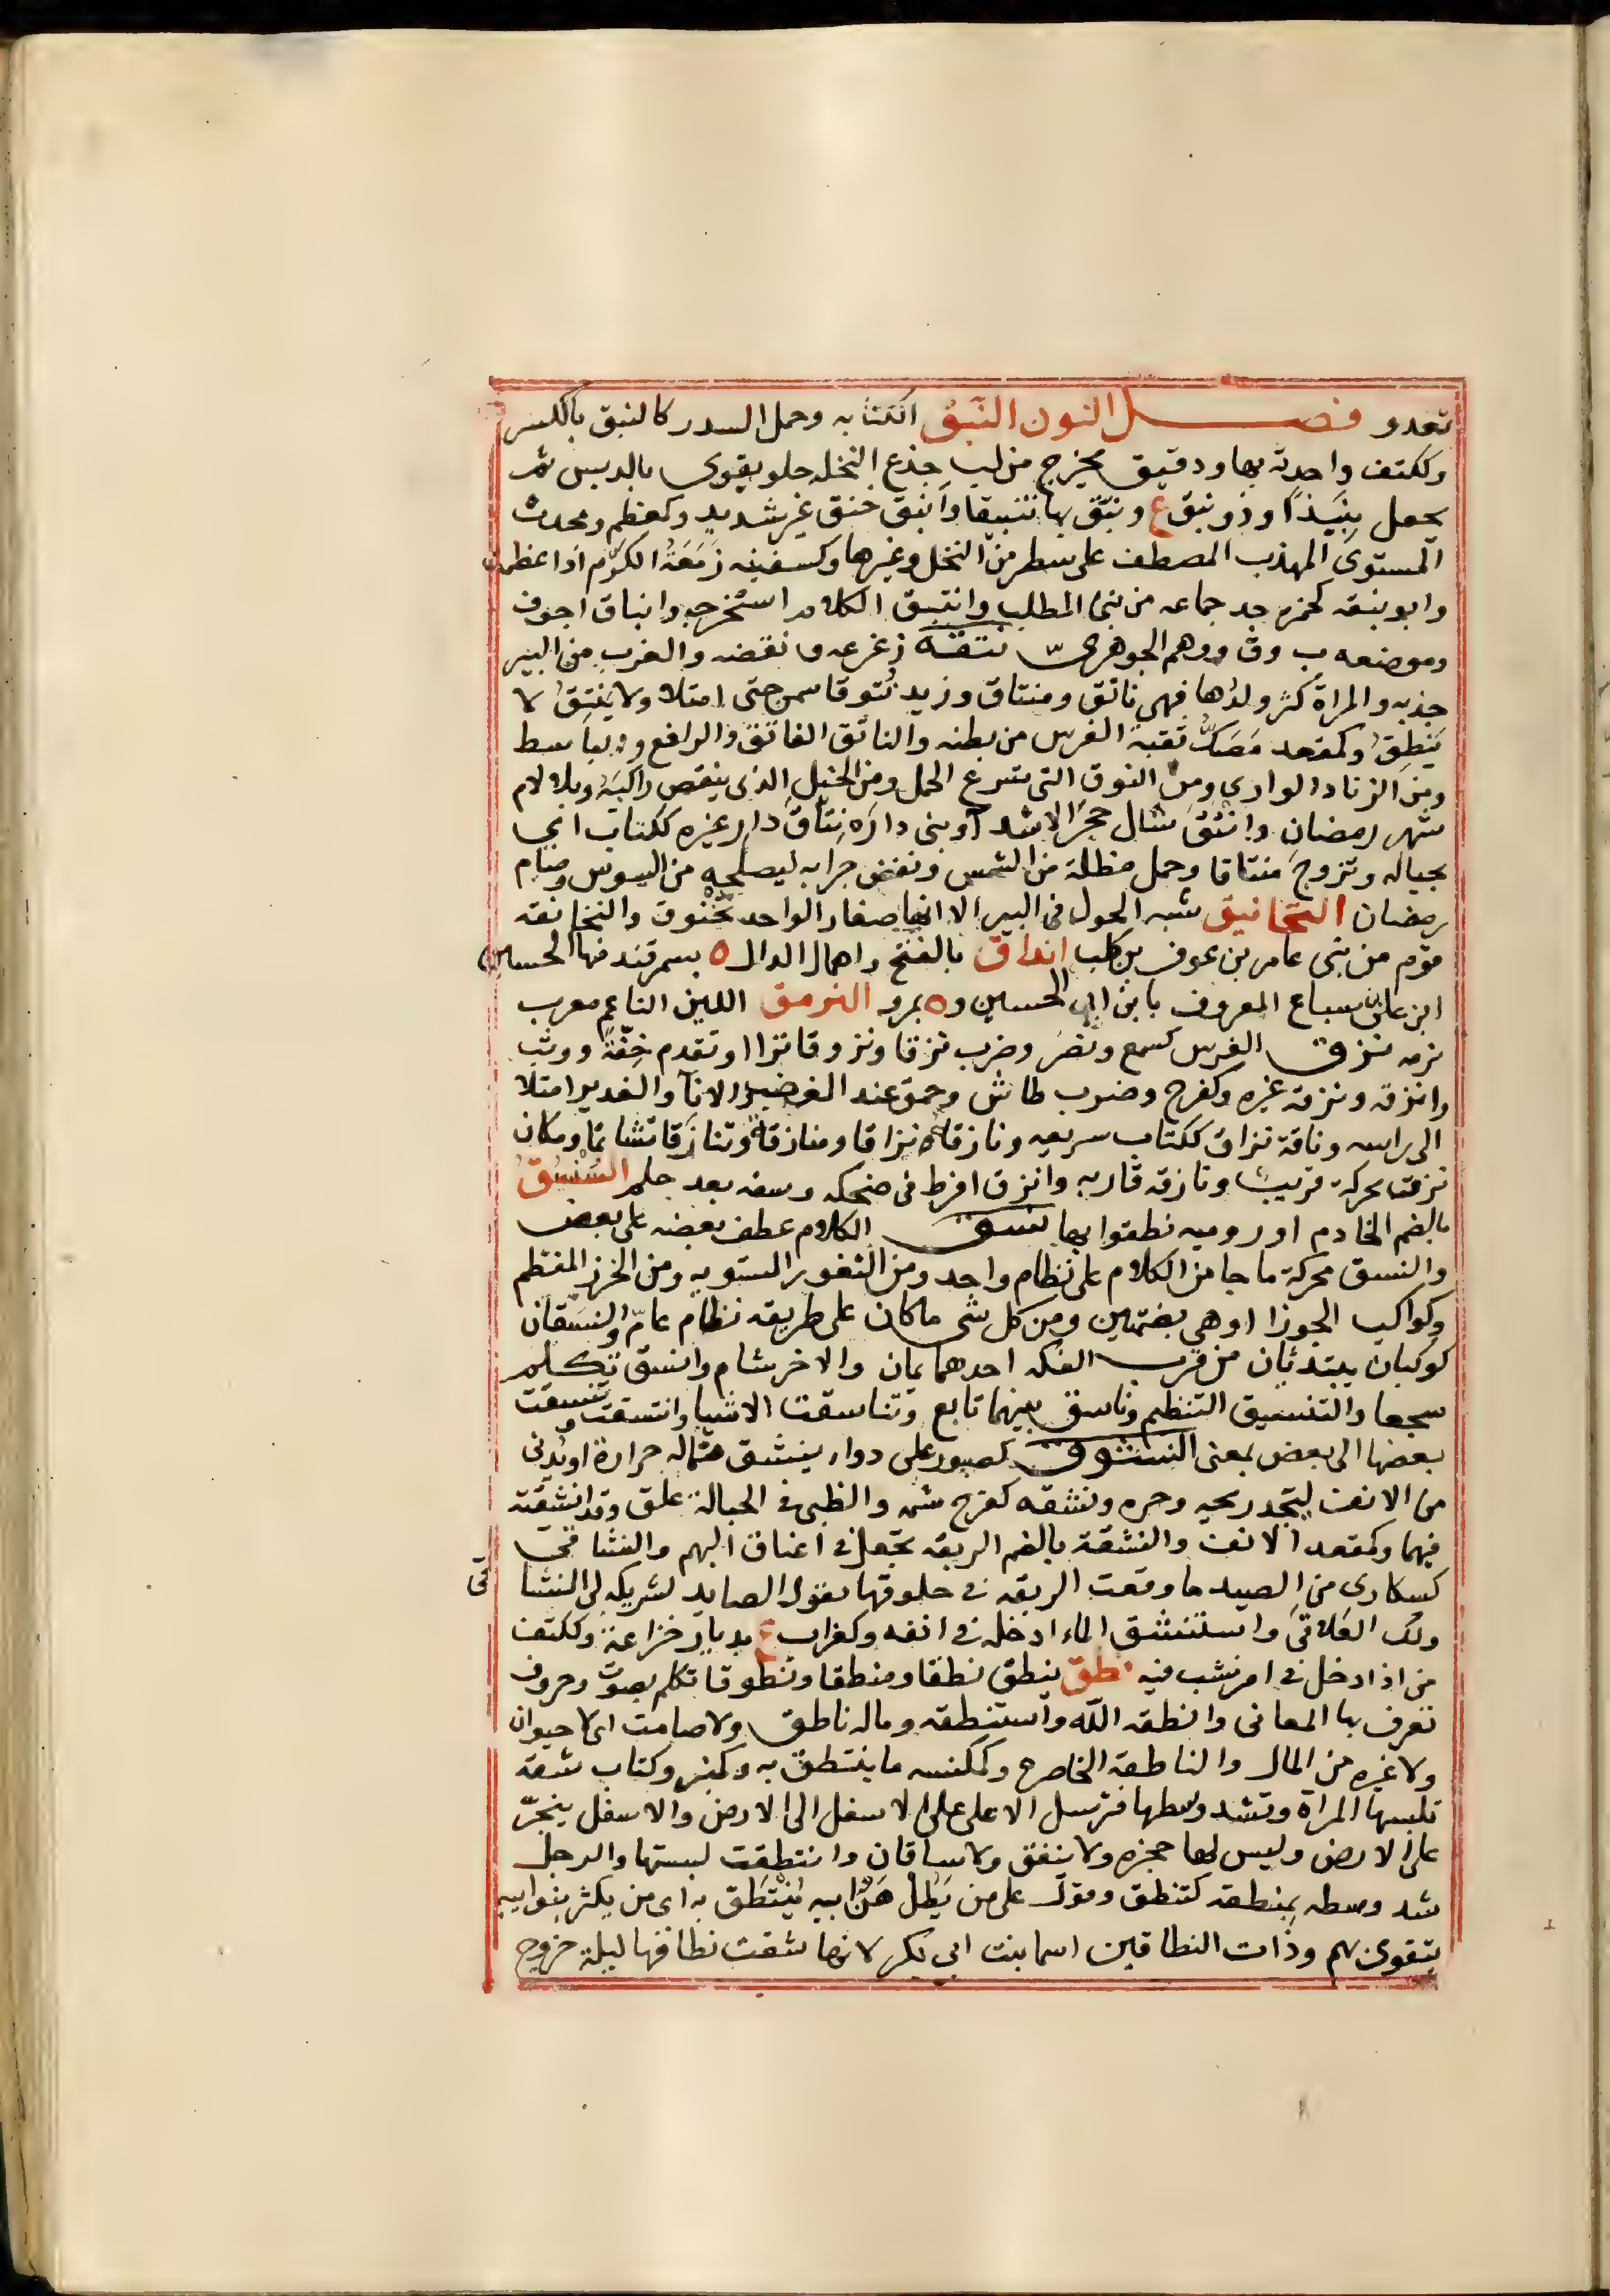 تعدو فصل النون النبق الكتابه وحمل السدر كالنبق بالكسر
وككتف واحدته بها ودقيق يخرج من لب جذع النخله حلو يقوى بالدبس ثم
يجعل نبيذا وذو نبق ع ونبق بها تنبيقا وانبق خنق غير شديد وكمعظم ومحدث
المستوى المهذب المصطف على سطر من النخل وغيرها وكسفينه زمعة الكرم اذا عظمت
وابو نبقه كحمزه جد جماعه من بنى المطلب وانتبق الكلام استخرجه وانباق اجوف
وموضعه ب وق ووهم الجوهرى نتقه زعزعه ونفضه والغرب من البير
جذبه والمراة كثر ولدها فهى ناتق ومنتاق وزيد نتوقا سمن حتى امتلا ولا ينتق لا
ينطق وكمقعد مصك ثقبة الفرس من بطنه والناتق الفاتق والرافع والباسط
ومن الزناد الوارى ومن النوق التى تسرع الحمل ومن الخيل الذى ينفض راكبه وبلا لام
شهر رمضان وانتق شال حجر الاشد او بنى داره نتاق دار غيره ككتاب اى
بحياله وتزوج منتاقا وحمل مظلة من الشمس ونفض جرابه ليصلحه من السوس وصام
رمضان النخانيق شبه الحول فى البير الا انها صغار الواحد نخنوق والنخانقه
قوم من بنى عامر بن عوف بن كلب انداق بالفتح واهمال الدال ه بسمرقند منها الحسين
ابن على بن سباع المعروف بابن ابى الحسين وه بمرو النرمق اللين الناعم معرب
نرمه نزق الفرس كسمع ونصر وضرب نزقا ونزوقا نزا او تقدم خفة ووثب
وانزقه ونزقه غيره وكفرح وضرب طاش وخف عند الغضب والانآ والغدير امتلا
الى راسه وناقة نزاق ككتاب سريعه ونازقه نزاقا ومنازقة وتنازقا تشاتما ومكان
نزق محركة قريب ونازقه قاربه وانزق افرط فى ضحكه وسفه بعد حلم السنسق
بالضم الخادم او روميه نطقوا بها نسق الكلام عطف بعضه على بعض
والنسق محركة ما جا من الكلام على نظام واحد ومن الثغور المستويه ومن الخرز المنظم
وكواكب الجوزا او هى بضمتين ومن كل شى ما كان على طريقه نظام عام والنسقان
كوكبان يبتدئان من قرب الفكه احدهما يمان والاخر شام وانسق تكلم
سجعا والتنسيق التنظيم وناسق بينهما تابع وتناسقت الاشيا وانتسقت وتنسقت
بعضها الى بعض بمعنى النشوق كصبور على دواء ينشق مماله حرارة او يدنى
من الانف ليجد ريحه وحره ونشقه كفرح شمه والظبى فى الحبالة علق وقد انشقته
فيهما وكمقعد الانف والنشقة بالضم الربقه تجعل فى اعناق البهم والنشاقى
كسكارى من الصيد ما وقعت الربقه فى حلوقها يقول الصايد لشريكه لى النشا قى
ولك العلاقى واستنشق الماء ادخله فى انفه وكغراب ع بديار خزاعة وككتف
من اذا دخل فى امر نشب فيه نطق ينطق نطقا ومنطقا ونطوقا تكلم بصوت وحروف
تعرف بها المعانى وانطقه الله واستنطقه وماله ناطق ولا صامت اى لا حيوان
ولا غيره من المال والناطقه الخاصره وكمكنسه ما ينتطق به وكمنبر وكتاب شقة
تلبسها المراة وتشد وسطها فترسل الاعلى على الاسفل الى الارض والاسفل ينجر
على الارض وليس لها حجزه ولا نيفق ولا ساقان وانتطقت لبستها والرجل
شد وسطه بمنطقه كتنطق وقول على من يطل هن ابيه ينتطق به اى من يكثر بنو ابيه
يتقوى بهم وذات النطاقين اسما بنت ابى بكر لانها شقت نطاقها ليلة خروج